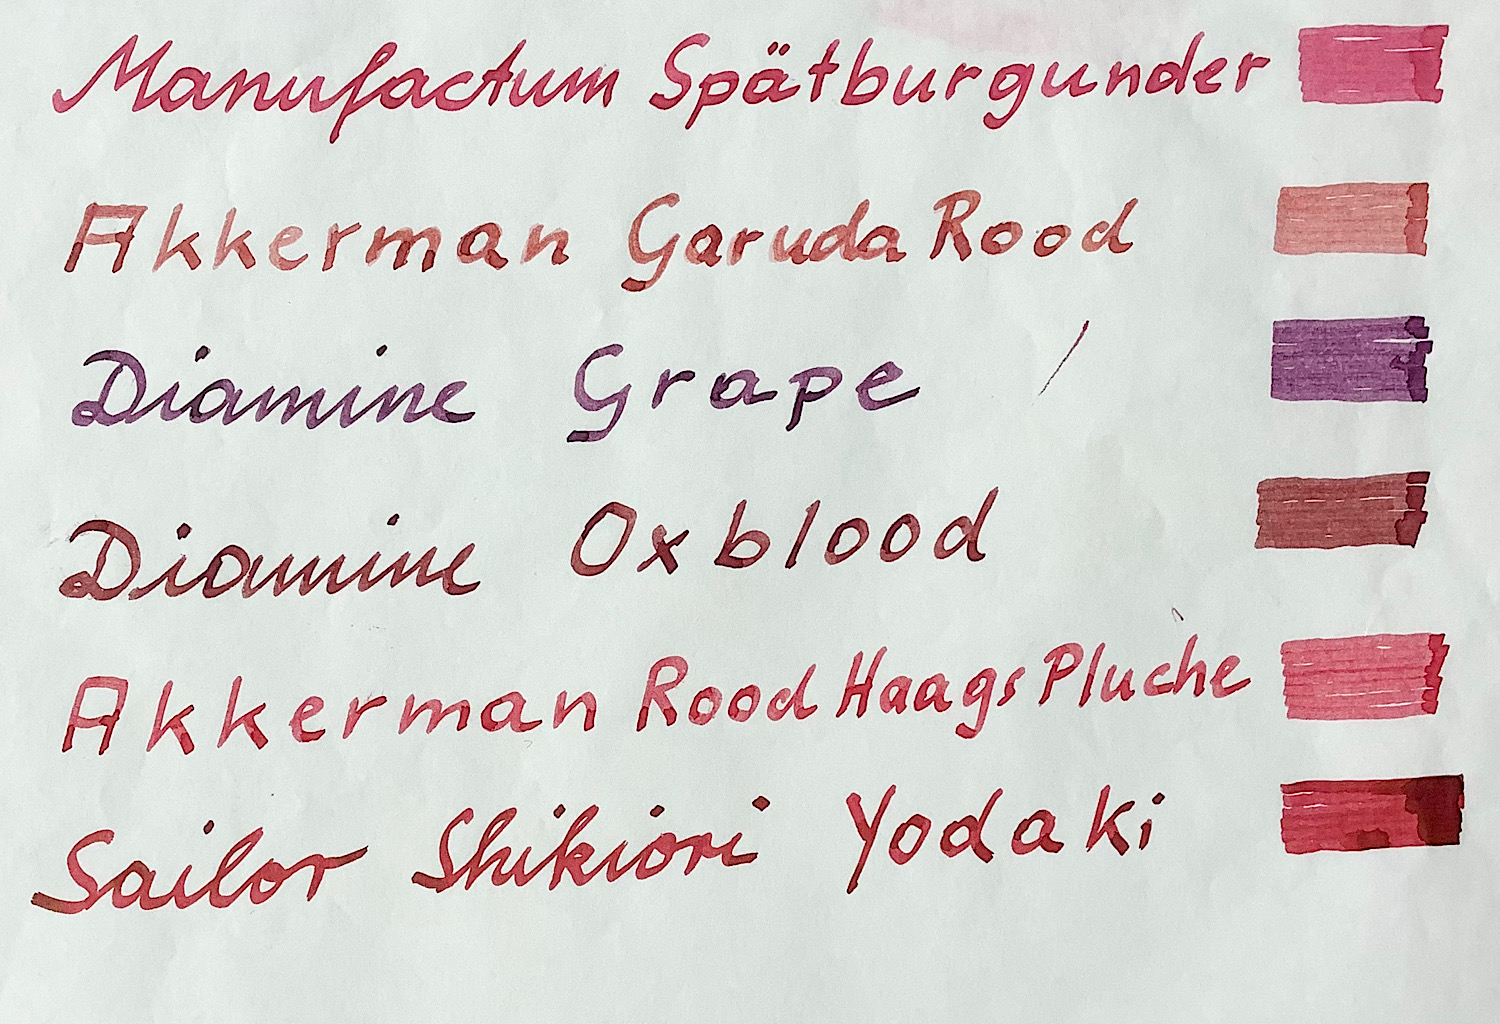 Manufactum Spätburgunder
Akkerman Garuda Rood
Diamine Grape
Diamine Oxblood
Akkerman Rood Haags Pluche
Sailor Shikiori Yodaki